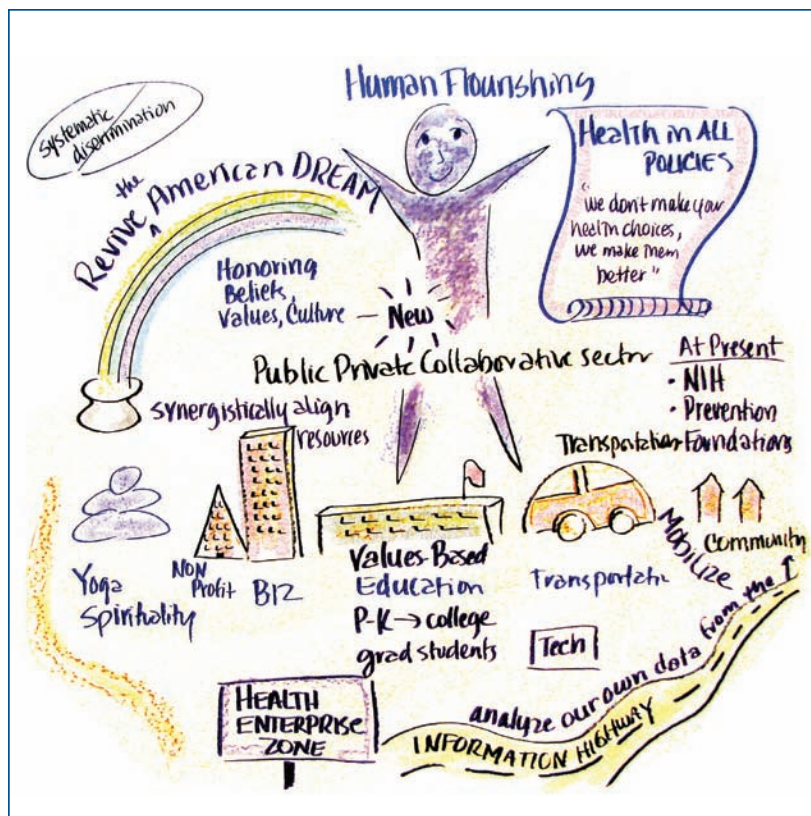 Human Flourishing
systematic
discrimination
Revive the American DREAM
Health in ALL
POLICIES
"we don't make your
health choices,
we make them
better"
Honoring
Beliefs,
Values, Culture
New
Public Private Collaborative Sector
At Present
• NIH
• Prevention
Transportation • Foundations
synergistically align
resources
Yoga
Spirituality
NON
Profit
BIZ
Values-Based
Education
P-K → college
grad students
Transportatn
Tech
MOBILIZE
Community
HEALTH
ENTERPRISE
ZONE
analyze our own data from the
INFORMATION HIGHWAY